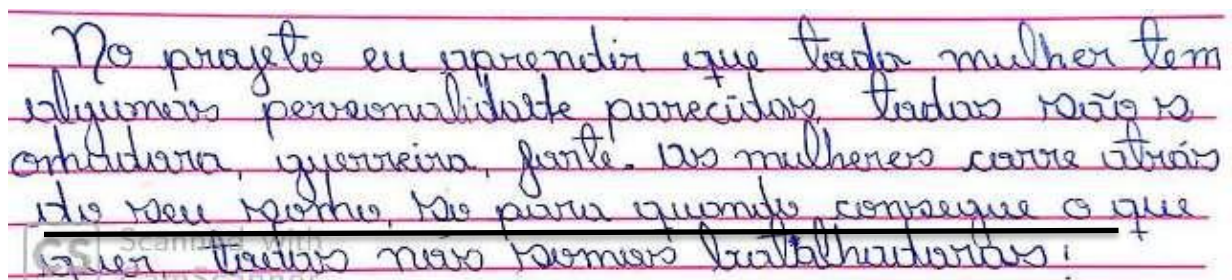 No projeto eu aprendir que toda mulher tem
algumas personalidade parecidas, todas são s
onhadora, guerreira, forte. as mulheres corre atrás
do seu sonho, so para quando consegue o que
quer todas nós somos batalhadoras;
CS Scanned with
CamScanner